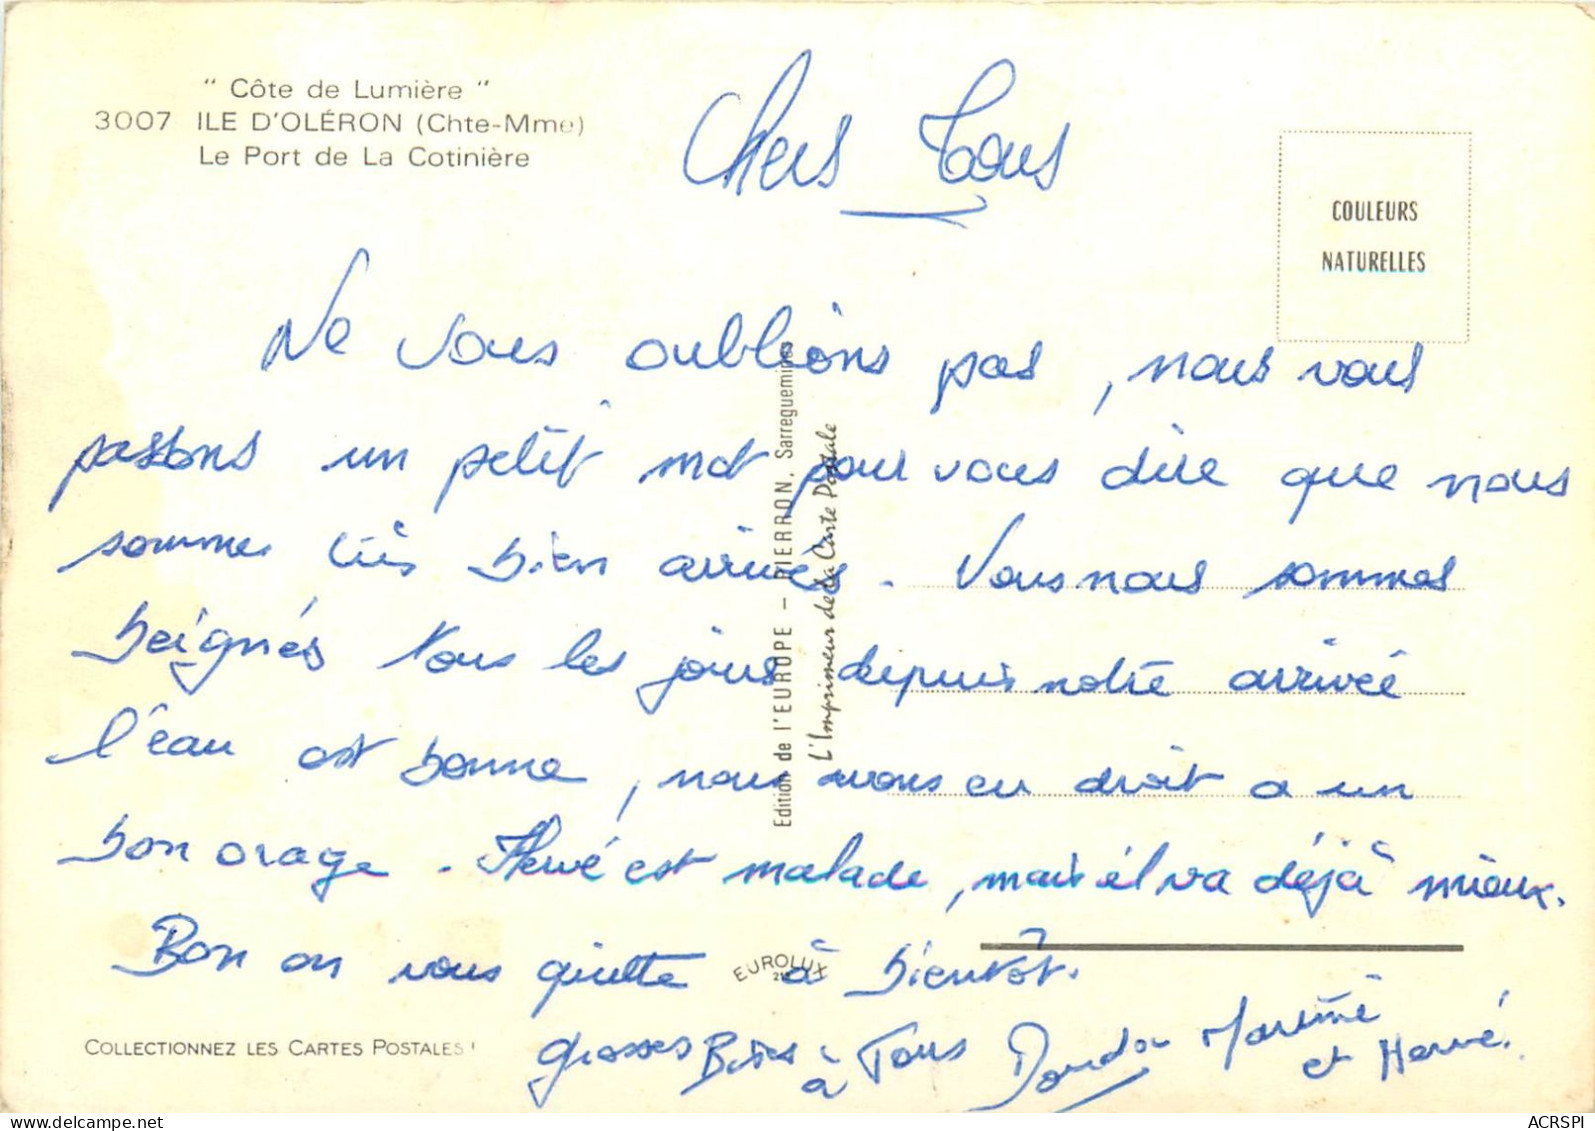 " Côte de Lumière "
3007 ILE D'OLÉRON (Chte-Mme)
Le Port de La Cotinière
COULEURS
NATURELLES
Chers Tous
Ne vous oublions pas, nous vous
passons un petit mot pour vous dire que nous
sommes très bien arrivés. Vous nous sommes
beignés tous les jours depuis notre arrivée
l'eau est bonne, nous avons eu droit a un
bon orage. Hervé est malade, mais il va déjà mieux.
Bon on vous quitte à bientôt.
grosses Bises à Tous Doudou Martine
et Hervé.
Edition de l'EUROPE - PIERRON. Sarreguemines
L'Imprimeur de la Carte Postale
EUROLUX
COLLECTIONNEZ LES CARTES POSTALES !
ACRSPI